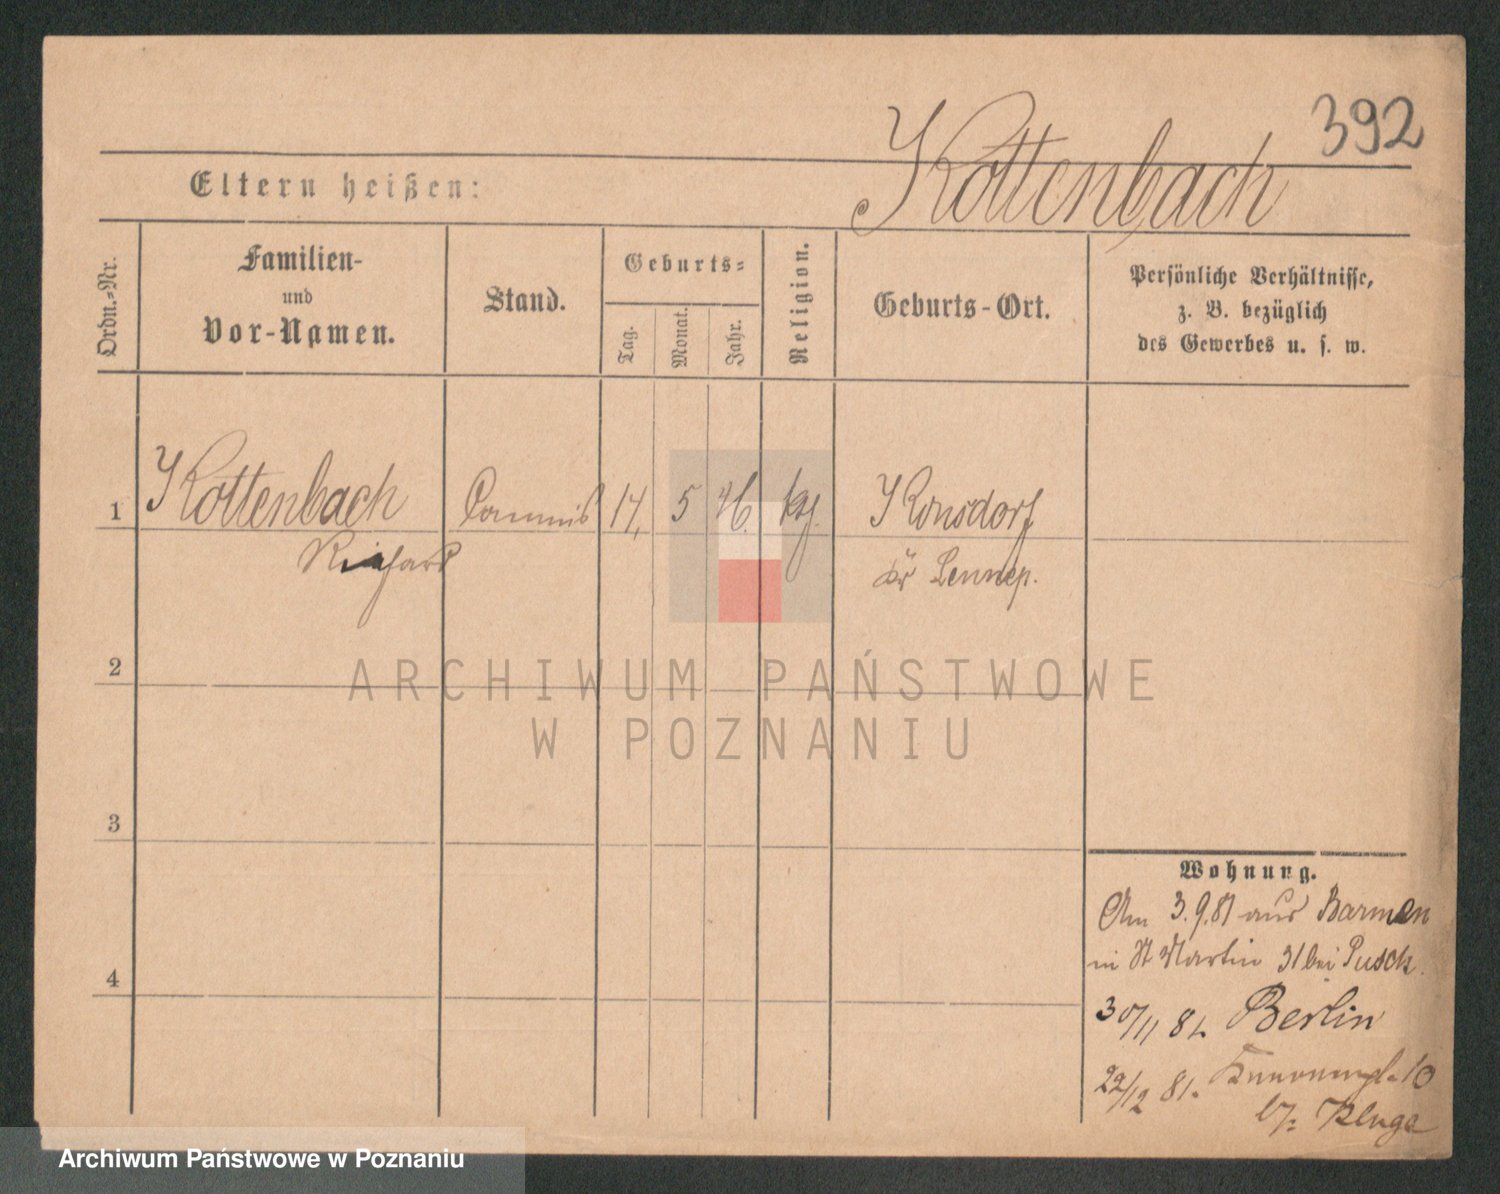 392
Kottenbach
Eltern heißen:
Ordn.=Nr.
Familien-
und
Vor-Namen.
Stand.
Geburts=
Tag.
Monat.
Jahr.
Religion.
Geburts-Ort.
Persönliche Verhältnisse,
z. B. bezüglich
des Gewerbes u. s. w.
1 Kottenbach Commis 14. 5 46. Ronsdorf
Richard Kr Lennep.
2
ARCHIWUM PAŃSTWOWE
W POZNANIU
3
4
Wohnung.
Am 3.9.81 aus Barmen
in St Martin 31 bei Pusch.
30/11 81. Berlin
22/12 81. 10
b/: Kluge
Archiwum Państwowe w Poznaniu